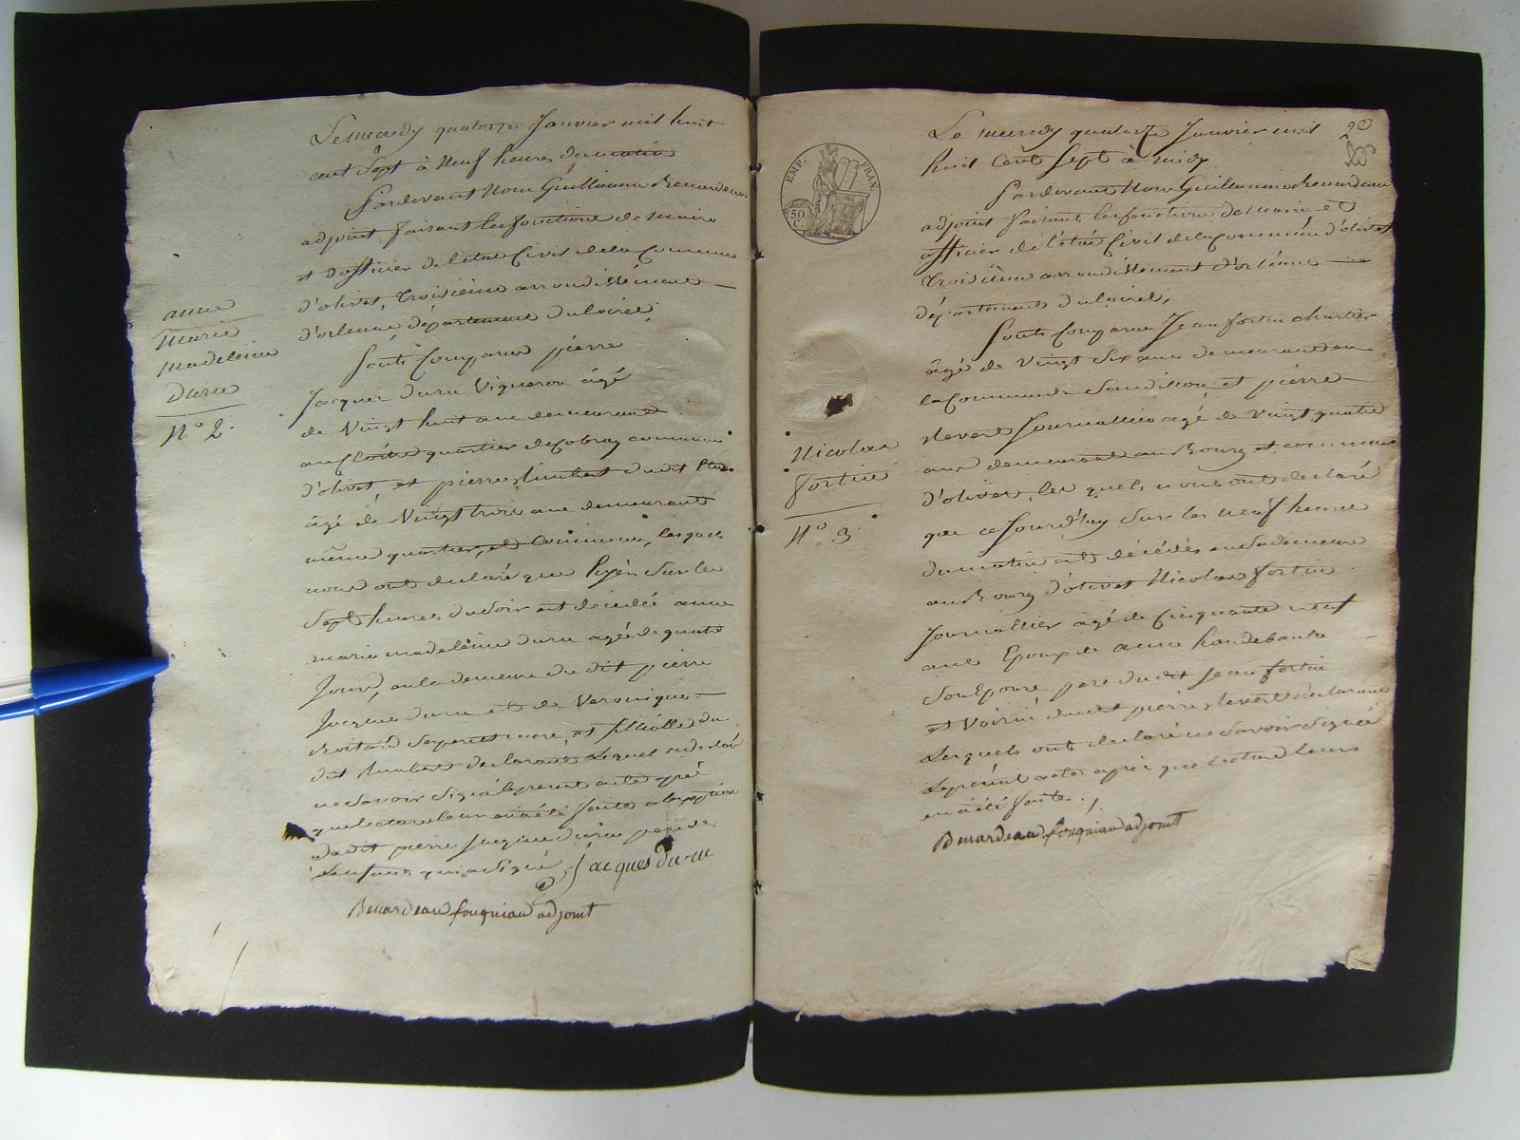 anne
marie
madeleine
duru
N° 2.
Le mardy quatorze Janvier mil huit
cent Sept à Neuf heures du matin
Pardevant Nous Guillaume
adjoint faisant les fonctions de Maire
et d'officier de l'état Civil de la Commune
d'olivet, troisième arrondissement
d'orléans département du loiret,
Sont Comparus pierre
Jacques duru Vigneron âgé
de Vingt huit ans demeurant
quartier de commune
d'olivet, et pierre dudit
âgé de Vingt trois ans demeurant
même quartier et Commune, lesquels
nous ont déclaré que hyer Sur les
Sept heures du Soir est décédée anne
marie madeleine duru agée de quatre
Jours, en la demeure du dit pierre
Jacques duru et de Veronique
Ses pere et mere, et du
dit declarant lequel
ne Savoir Signé le present acte après
que lecture leur en a été faite a l'exception
dudit pierre Jacques duru pere de
L'enfant qui a Signé, Jacques du ru
adjoint
EMP. FRAN.
50 C.
Nicolas
fortin
N° 3.
Le mardy quatorze Janvier mil
huit Cent Sept à midy
Pardevant Nous Guillaume
adjoint faisant les fonctions de Maire et
officier de l'état Civil de la Commune d'olivet
troisième arrondissement d'orléans
département du loiret,
Sont Comparus Jean fortin
âgé de Vingt Six ans demeurant en
la Commune de et pierre
Journallier agé de Vingt quatre
ans demeurant au Bourg et commune
d'olivet, les quels nous ont déclaré
que ce Jourd'huy Sur les neuf heures
du matin est décédé en Sa demeure
au Bourg d'olivet Nicolas fortin
Journallier âgé de Cinquante neuf
ans Epoux de anne
Son Epouse pere dudit Jean fortin
et Voisin dudit pierre declarant
Lesquels ont déclaré ne Savoir Signé
Le présent acte après que lecture Leurs
en a été faite.
adjoint